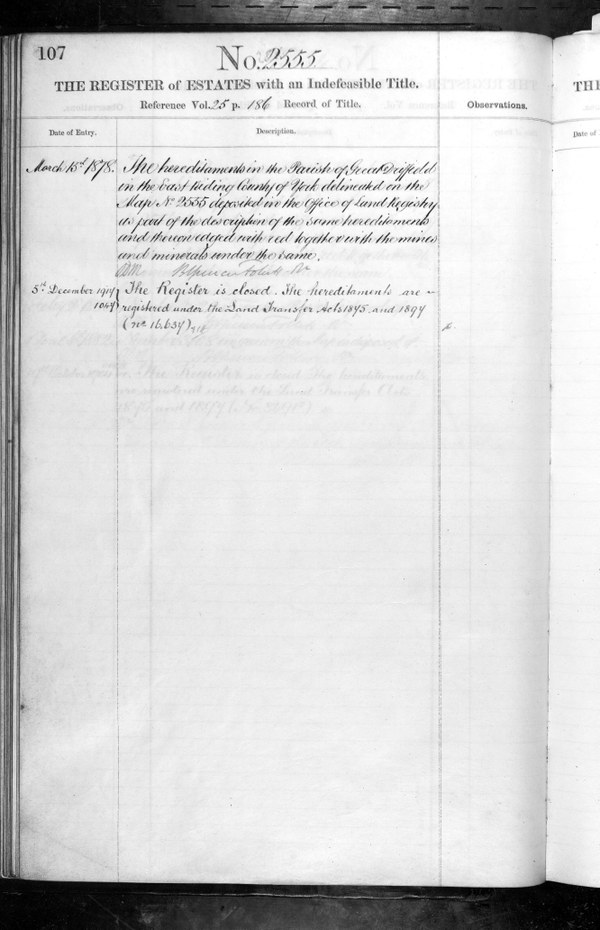 107
No. 2555
THE REGISTER of ESTATES with an Indefeasible Title.
Reference Vol. 25 p. 186 Record of Title.
Observations.
Date of Entry.
Description.
March 15th 1878.
The hereditaments in the Parish of Great Driffield
in the East Riding County of York delineated on the
Map No 2555 deposited in the Office of Land Registry
as part of the description of the same hereditaments
and thereon edged with red together with the mines
and minerals under the same.
5th December 1907
The Register is closed. The hereditaments are
registered under the Land Transfer Acts 1875 and 1897
(No. 16,657)
THE
Date of